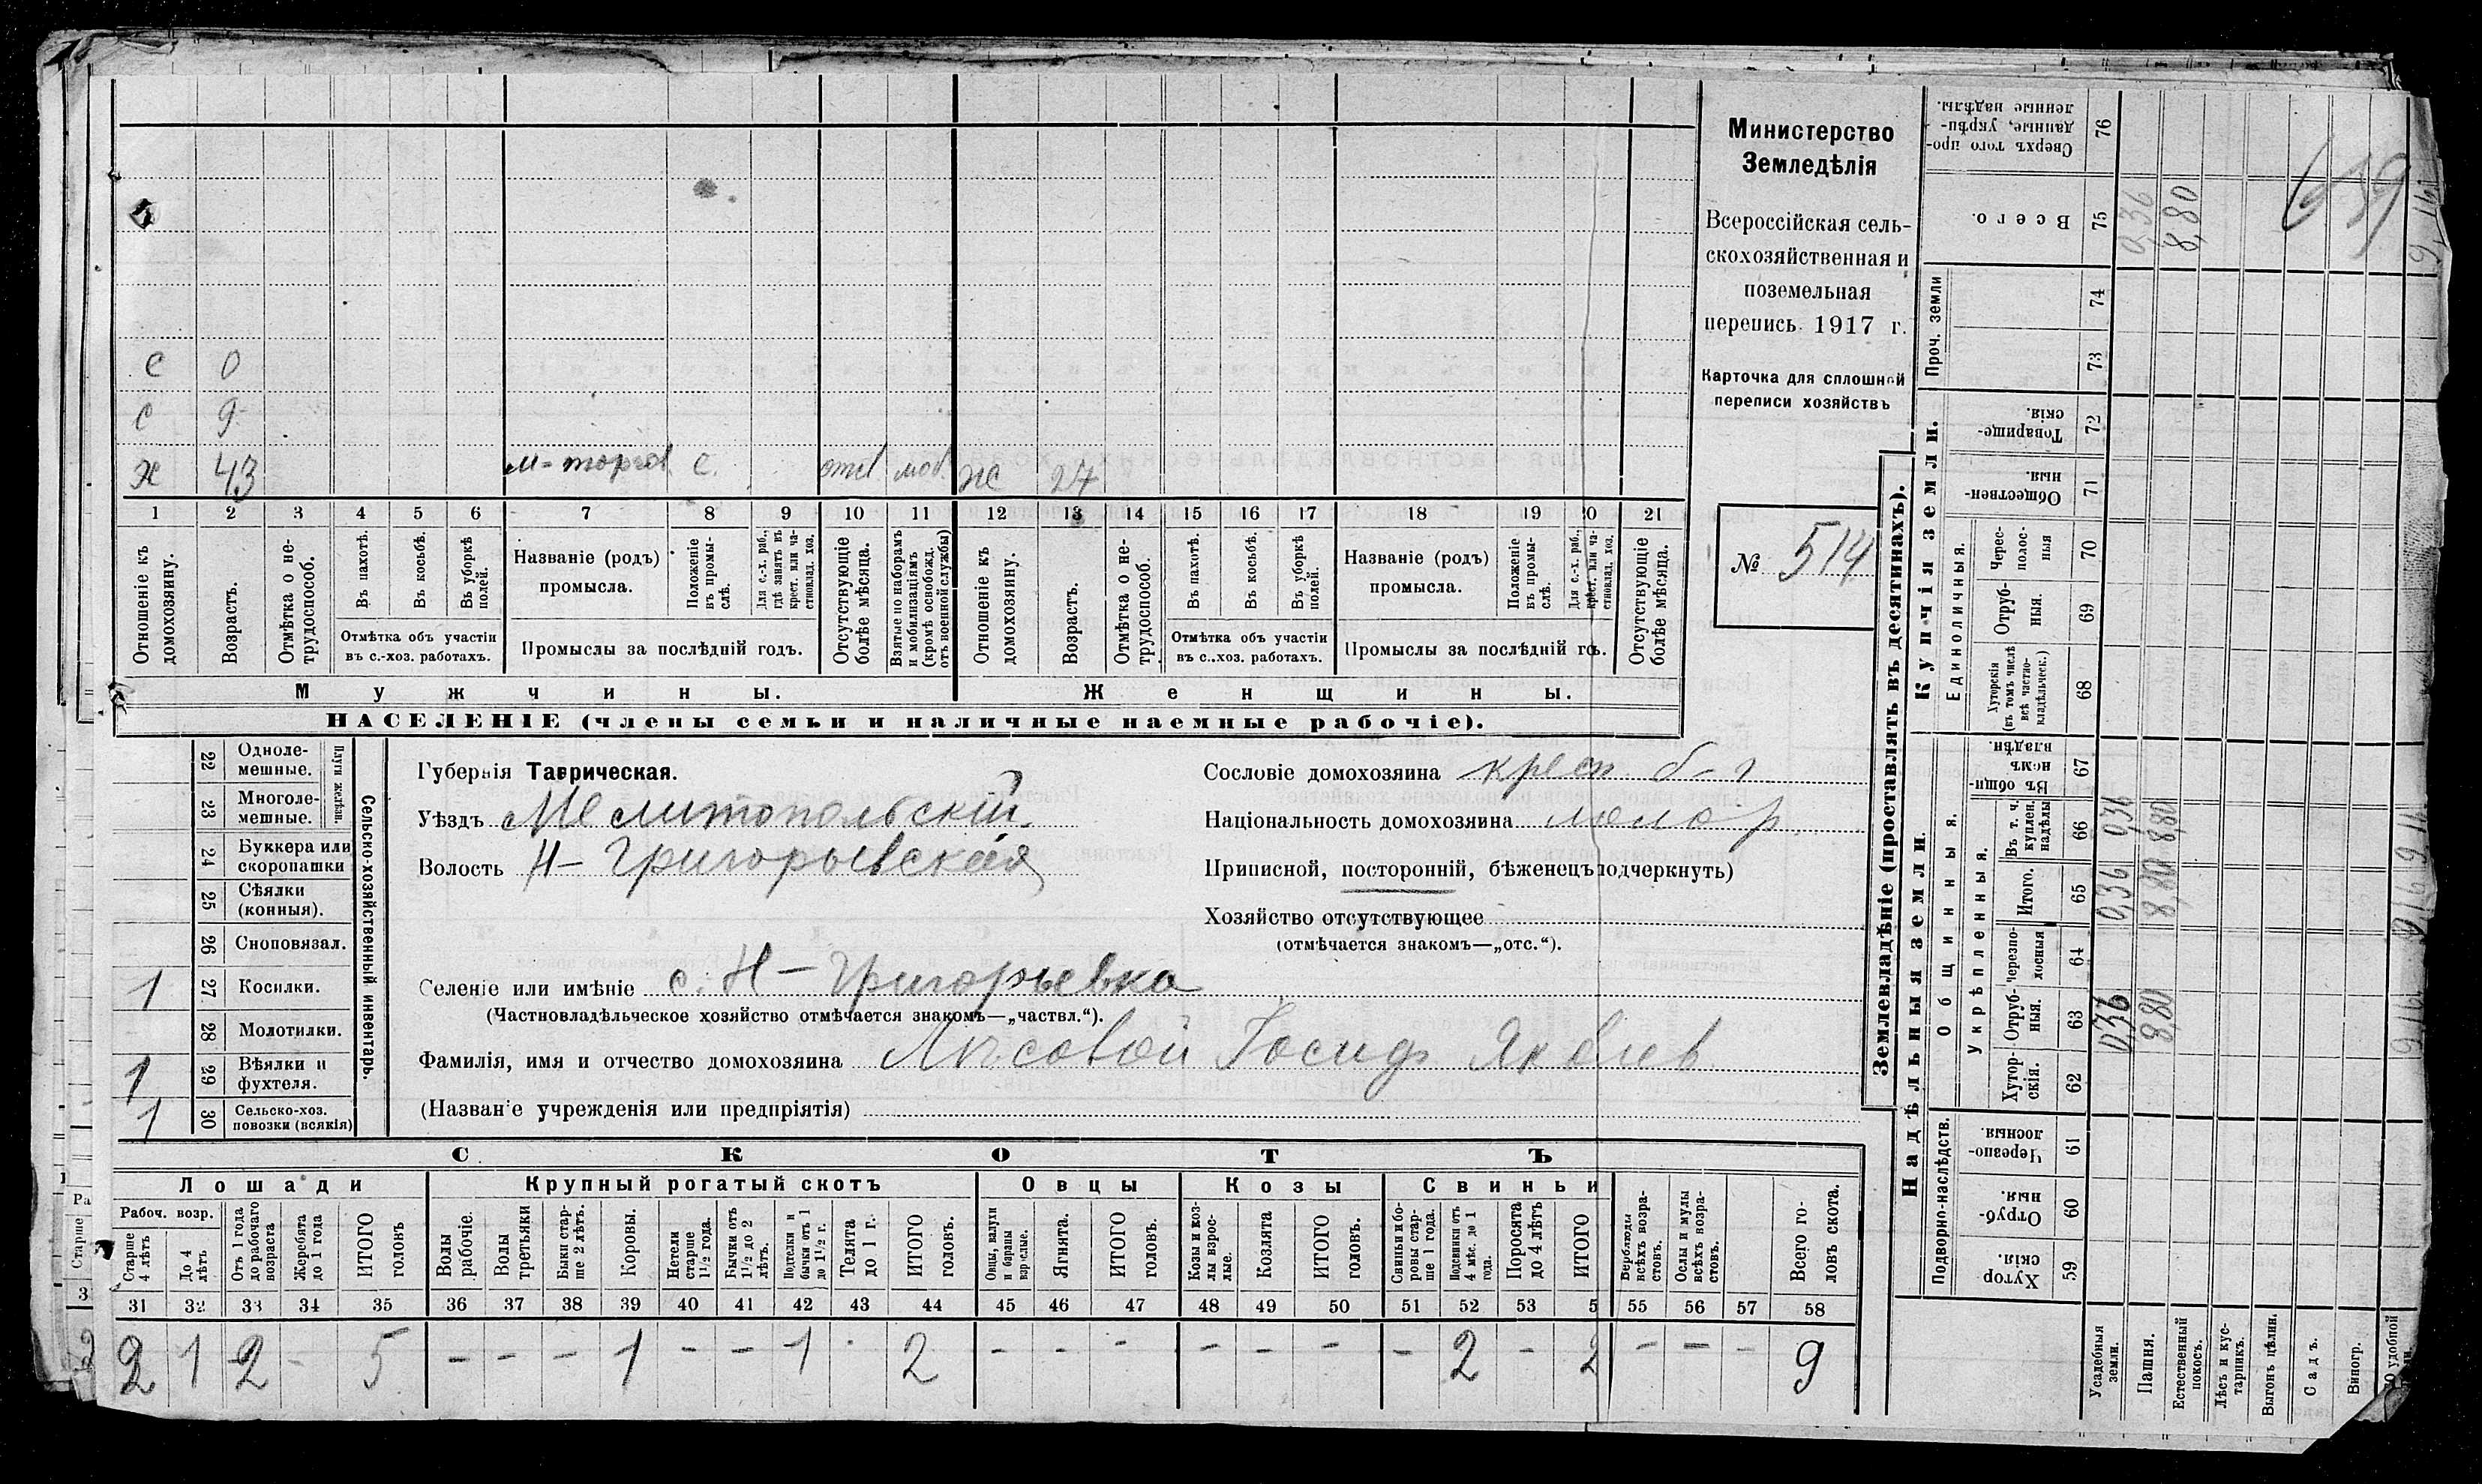 Министерство
Земледѣлія
Всероссійская сель-
скохозяйственная и
поземельная
перепись 1917 г.
Карточка для сплошной
переписи хозяйствъ
№ 514
с 0
с 9
х 43 м-торгов с. отс моб. ж 27
1 2 3 4 5 6 7 8 9 10 11 12 13 14 15 16 17 18 19 20 21
Отношеніе къ домохозяину.
Возрастъ.
Отмѣтка о не-трудоспособ.
Въ пахотѣ.
Въ косьбѣ.
Въ уборкѣ полей.
Отмѣтка объ участіи
въ с.-хоз. работахъ.
Названіе (родъ)
промысла.
Положеніе въ промы-слѣ.
Для с.-х. раб., гдѣ занятъ въ крест. или ча-стновлад. хоз.
Промыслы за послѣдній годъ.
Отсутствующіе болѣе мѣсяца.
Взятые по наборамъ и мобилизаціямъ (кромѣ освобожд. отъ военной службы)
Отношеніе къ домохозяину.
Возрастъ.
Отмѣтка о не-трудоспособ.
Въ пахотѣ.
Въ косьбѣ.
Въ уборкѣ полей.
Отмѣтка объ участіи
въ с.-хоз. работахъ.
Названіе (родъ)
промысла.
Положеніе въ промы-слѣ.
Для с.-х. раб., крест. или ча-стновлад. хоз.
Промыслы за послѣдній г
Отсутствующіе болѣе мѣсяца.
Мужчины.
Женщины.
НАСЕЛЕНІЕ (члены семьи и наличные наемные рабочіе).
Сельско-хозяйственный инвентарь.
Плуги желѣзн.
22 Одноле-мешные.
23 Многоле-мешные.
24 Буккера или скоропашки
25 Сѣялки (конныя).
26 Сноповязал.
1 27 Косилки.
28 Молотилки.
1 29 Вѣялки и фухтеля.
1 30 Сельско-хоз. повозки (всякія)
Губернія Таврическая.
Уѣздъ Мелитопольскій
Волость Н-Григорьевская
Сословіе домохозяина крест. б-г
Національность домохозяина малор.
Приписной, посторонній, бѣженецъ подчеркнуть)
Хозяйство отсутствующее
(отмѣчается знакомъ—„отс.“).
Селеніе или имѣніе с. Н-Григорьевка
(Частновладѣльческое хозяйство отмѣчается знакомъ—„частвл.“).
Фамилія, имя и отчество домохозяина Лысовой Іосиф Яковлев
(Названіе учрежденія или предпріятія)
СКОТЪ
Лошади
Крупный рогатый скотъ
Овцы
Козы
Свиньи
Рабоч. возр.
Старше 4 лѣтъ
До 4 лѣтъ
Отъ 1 года до рабочаго возраста
Жеребята до 1 года
ИТОГО головъ
Волы рабочіе.
Волы третьяки
Быки стар-ше 2 лѣтъ.
Коровы.
Нетели старше 1½ года.
Бычки отъ 1½ до 2 лѣтъ.
Подтелки и бычки отъ 1 до 1½ г.
Телята до 1 г.
ИТОГО головъ.
Овцы, валухи и бараны взрослые.
Ягнята.
ИТОГО головъ.
Козы и коз-лы взрос-лые.
Козлята
ИТОГО головъ.
Свиньи и бо-ровы стар-ше 1 года.
Подсвинки отъ 4 мѣс. до 1 года.
Поросята до 4 лѣтъ
ИТОГО
Верблюды всѣхъ возра-стовъ.
Ослы и мулы всѣхъ возра-стовъ.
Всего го-ловъ скота.
31 32 33 34 35 36 37 38 39 40 41 42 43 44 45 46 47 48 49 50 51 52 53 5 55 56 57 58
2 1 2 - 5 - - - 1 - - 1 · 2 - - - - - - - 2 - 2 - - - 9
Землевладѣніе (проставлять въ десятинахъ).
Надѣльныя земли.
Купчія земли.
Подворно-наслѣдств.
Общинныя.
Укрѣпленныя.
Единоличныя.
Проч. земли
Хутор-скія. 59
Отруб-ныя. 60
Черезпо-лосныя. 61
Хутор-скія. 62
Отруб-ныя. 63
Черезпо-лосныя 64
Итого. 65
Въ т. ч. куплен. надѣлы 66
Въ общин-номъ владѣн. 67
Хуторскія (въ томъ числѣ всѣ частно-владѣльческ.) 68
Отруб-ныя. 69
Черес-полос-ныя 70
Обществен-ныя 71
Товарище-скія. 72
73
74
Всего. 75
Сверхъ того про-данные, укрѣп-ленные надѣлы. 76
Усадебныя земли. 0,36 0,36 0,36 0,36
Пашня. 8,80 8,80 8,80 8,80
Естественный покосъ.
Лѣсъ и кус-тарникъ.
Выгонъ цѣлин.
Садъ.
Виногр.
удобной
9,16 9,16 9,16 9,16
639